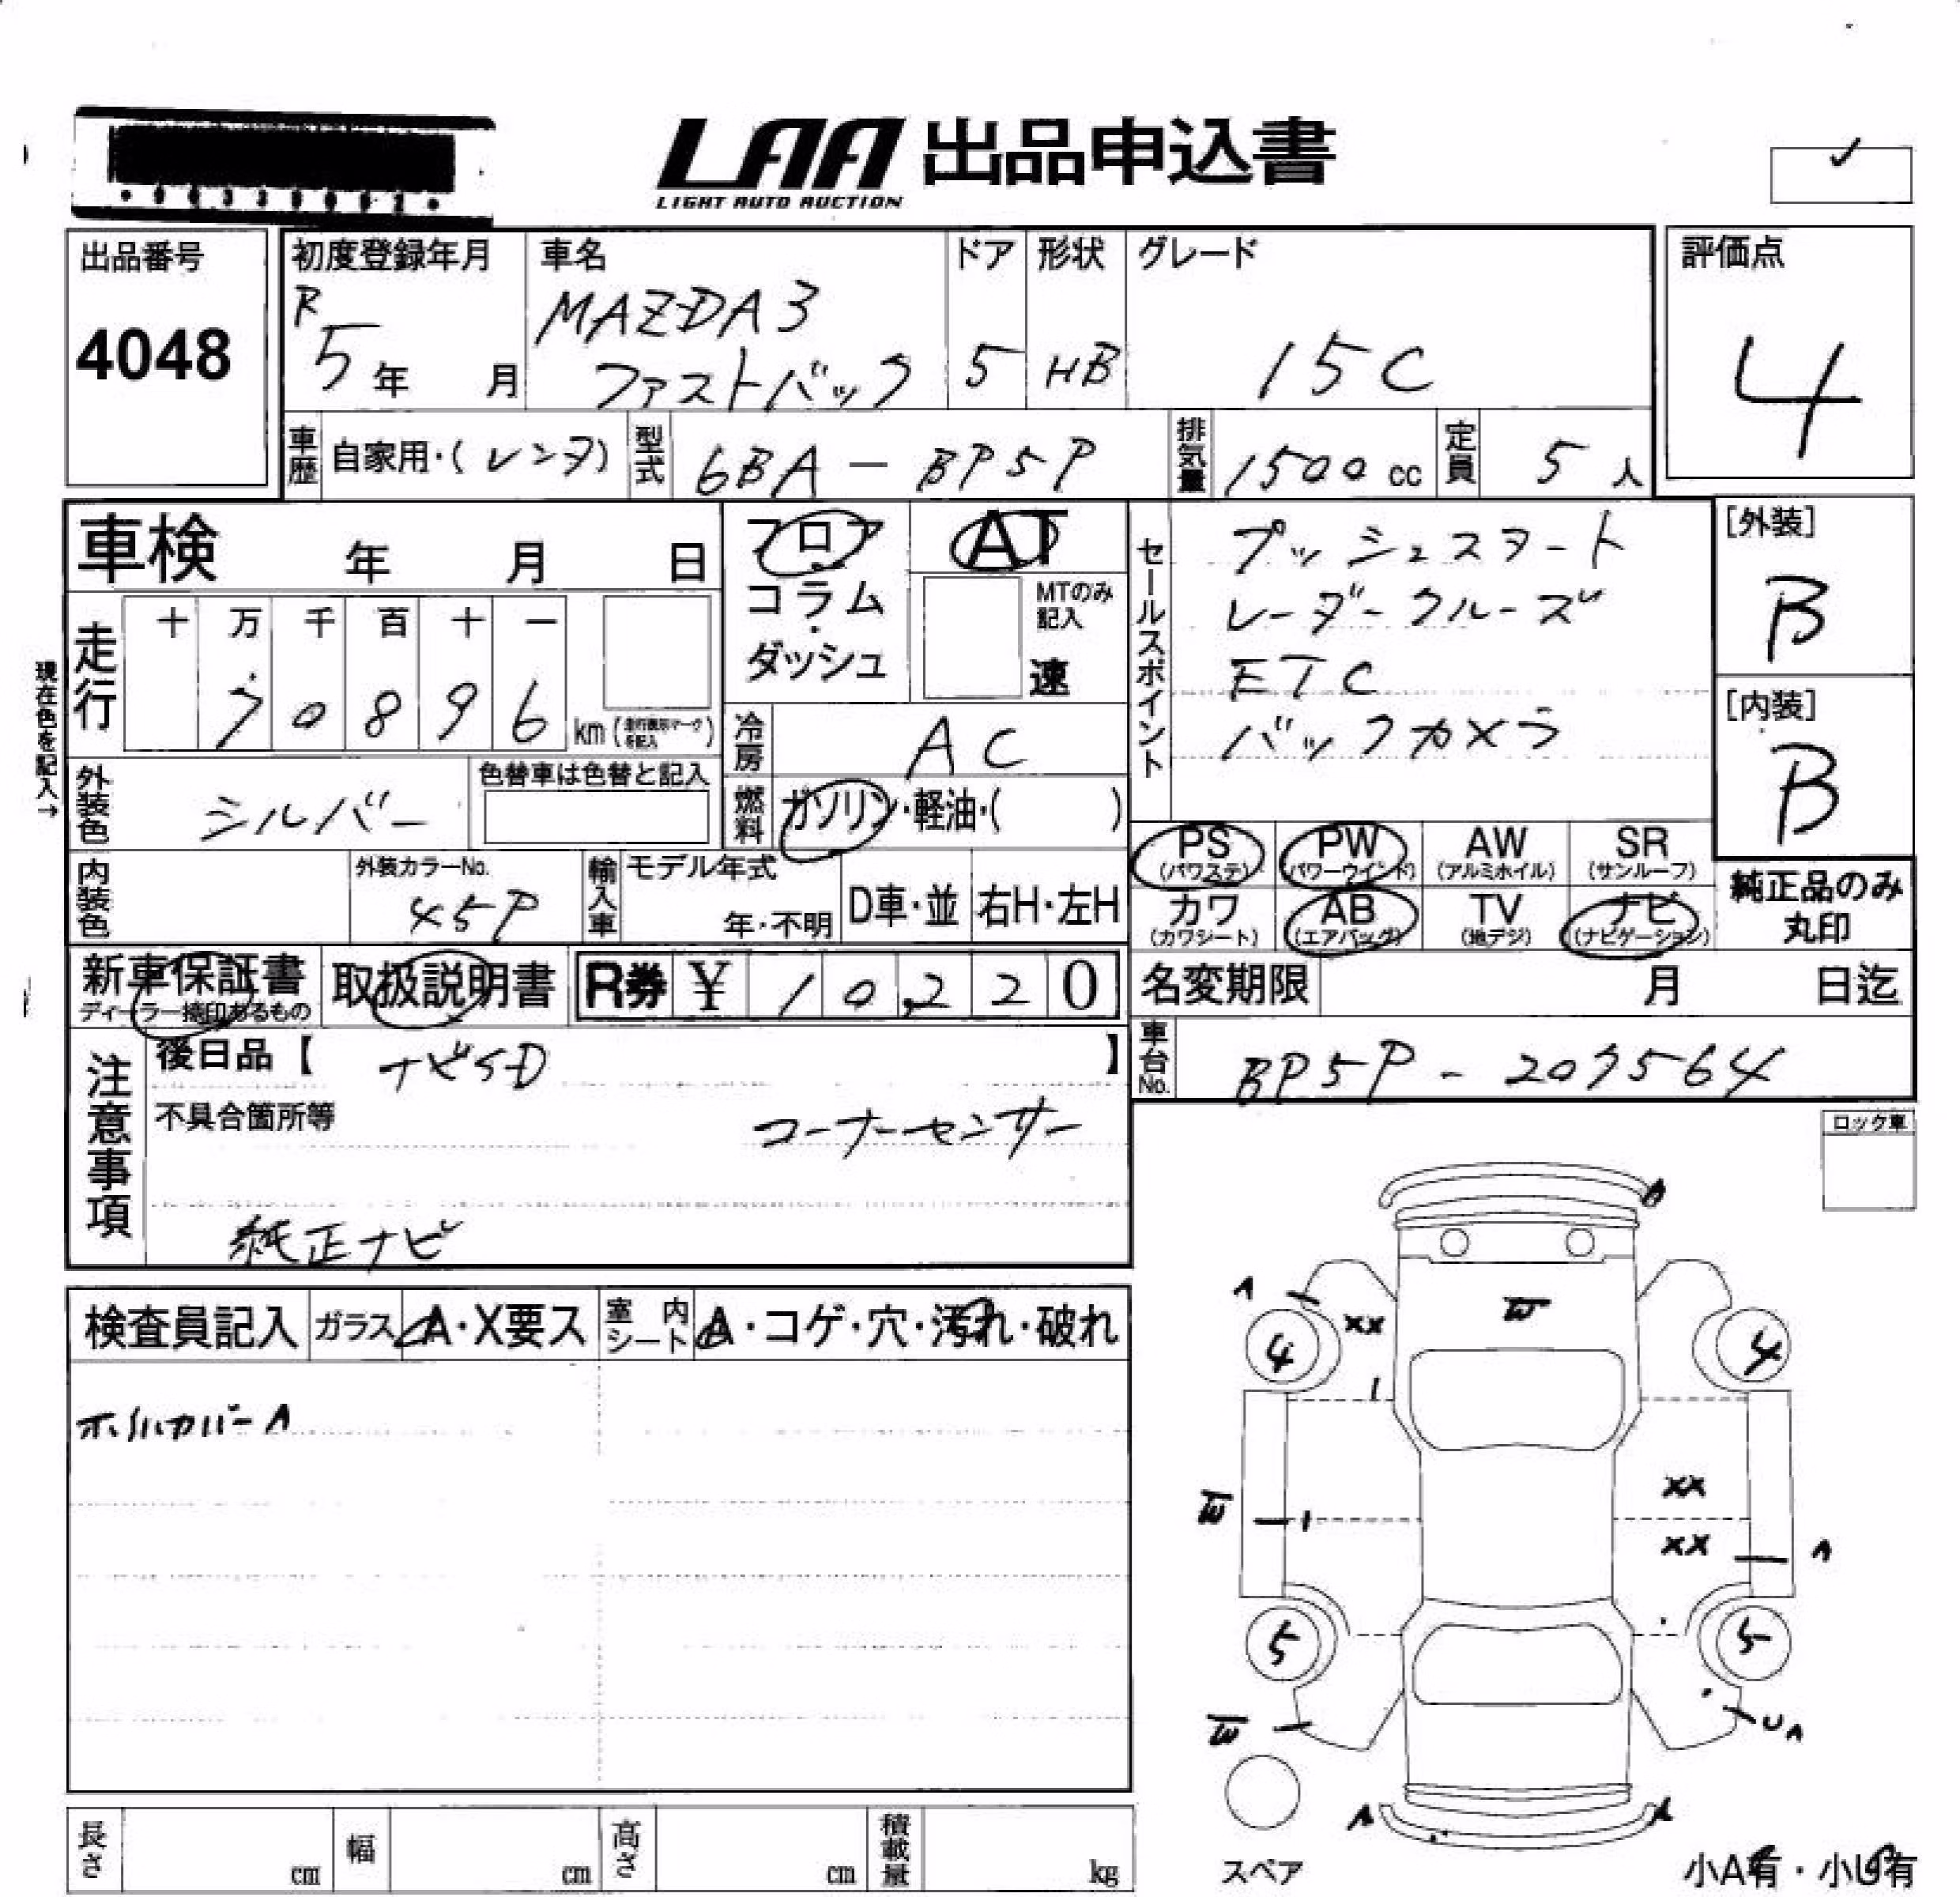 LAA 出品申込書
LIGHT AUTO AUCTION
出品番号
4048
初度登録年月
R
5年 月
車名
MAZDA3
ファストバック
ドア
5
形状
HB
グレード
15C
評価点
4
車歴 自家用・(レンタ)
型式 6BA - BP5P
排気量 1500cc
定員 5人
車検 年 月 日
フロア・コラム・ダッシュ
AT
MTのみ記入
速
セールスポイント
プッシュスタート
レーダークルーズ
ETC
バックカメラ
[外装]
B
[内装]
B
現在色を記入→
走行
十 万 千 百 十 一
7 0 8 9 6 km
冷房 AC
燃料 ガソリン・軽油・( )
外装色 シルバー
色替車は色替と記入
内装色
外装カラーNo.
45P
輸入車
モデル年式
年・不明
D車・並
右H・左H
PS (パワステ)
PW (パワーウインド)
AW (アルミホイル)
SR (サンルーフ)
カワ (カワシート)
AB (エアバッグ)
TV (地デジ)
ナビ (ナビゲーション)
純正品のみ
丸印
新車保証書
ディーラー捺印あるもの
取扱説明書
R券 ¥ 10,220
名変期限 月 日迄
車台No. BP5P-207564
注意事項
後日品【 ナビSD 】
不具合箇所等
コーナーセンサー
純正ナビ
ロック車
検査員記入 ガラス A・X要ス 室内シート A・コゲ・穴・汚れ・破れ
ホイルカバーA
A
A
XX
W
4
4
XX
W
XX
A
5
5
W
UA
A
A
スペア
小A有・小U有
長さ cm
幅 cm
高さ cm
積載量 kg